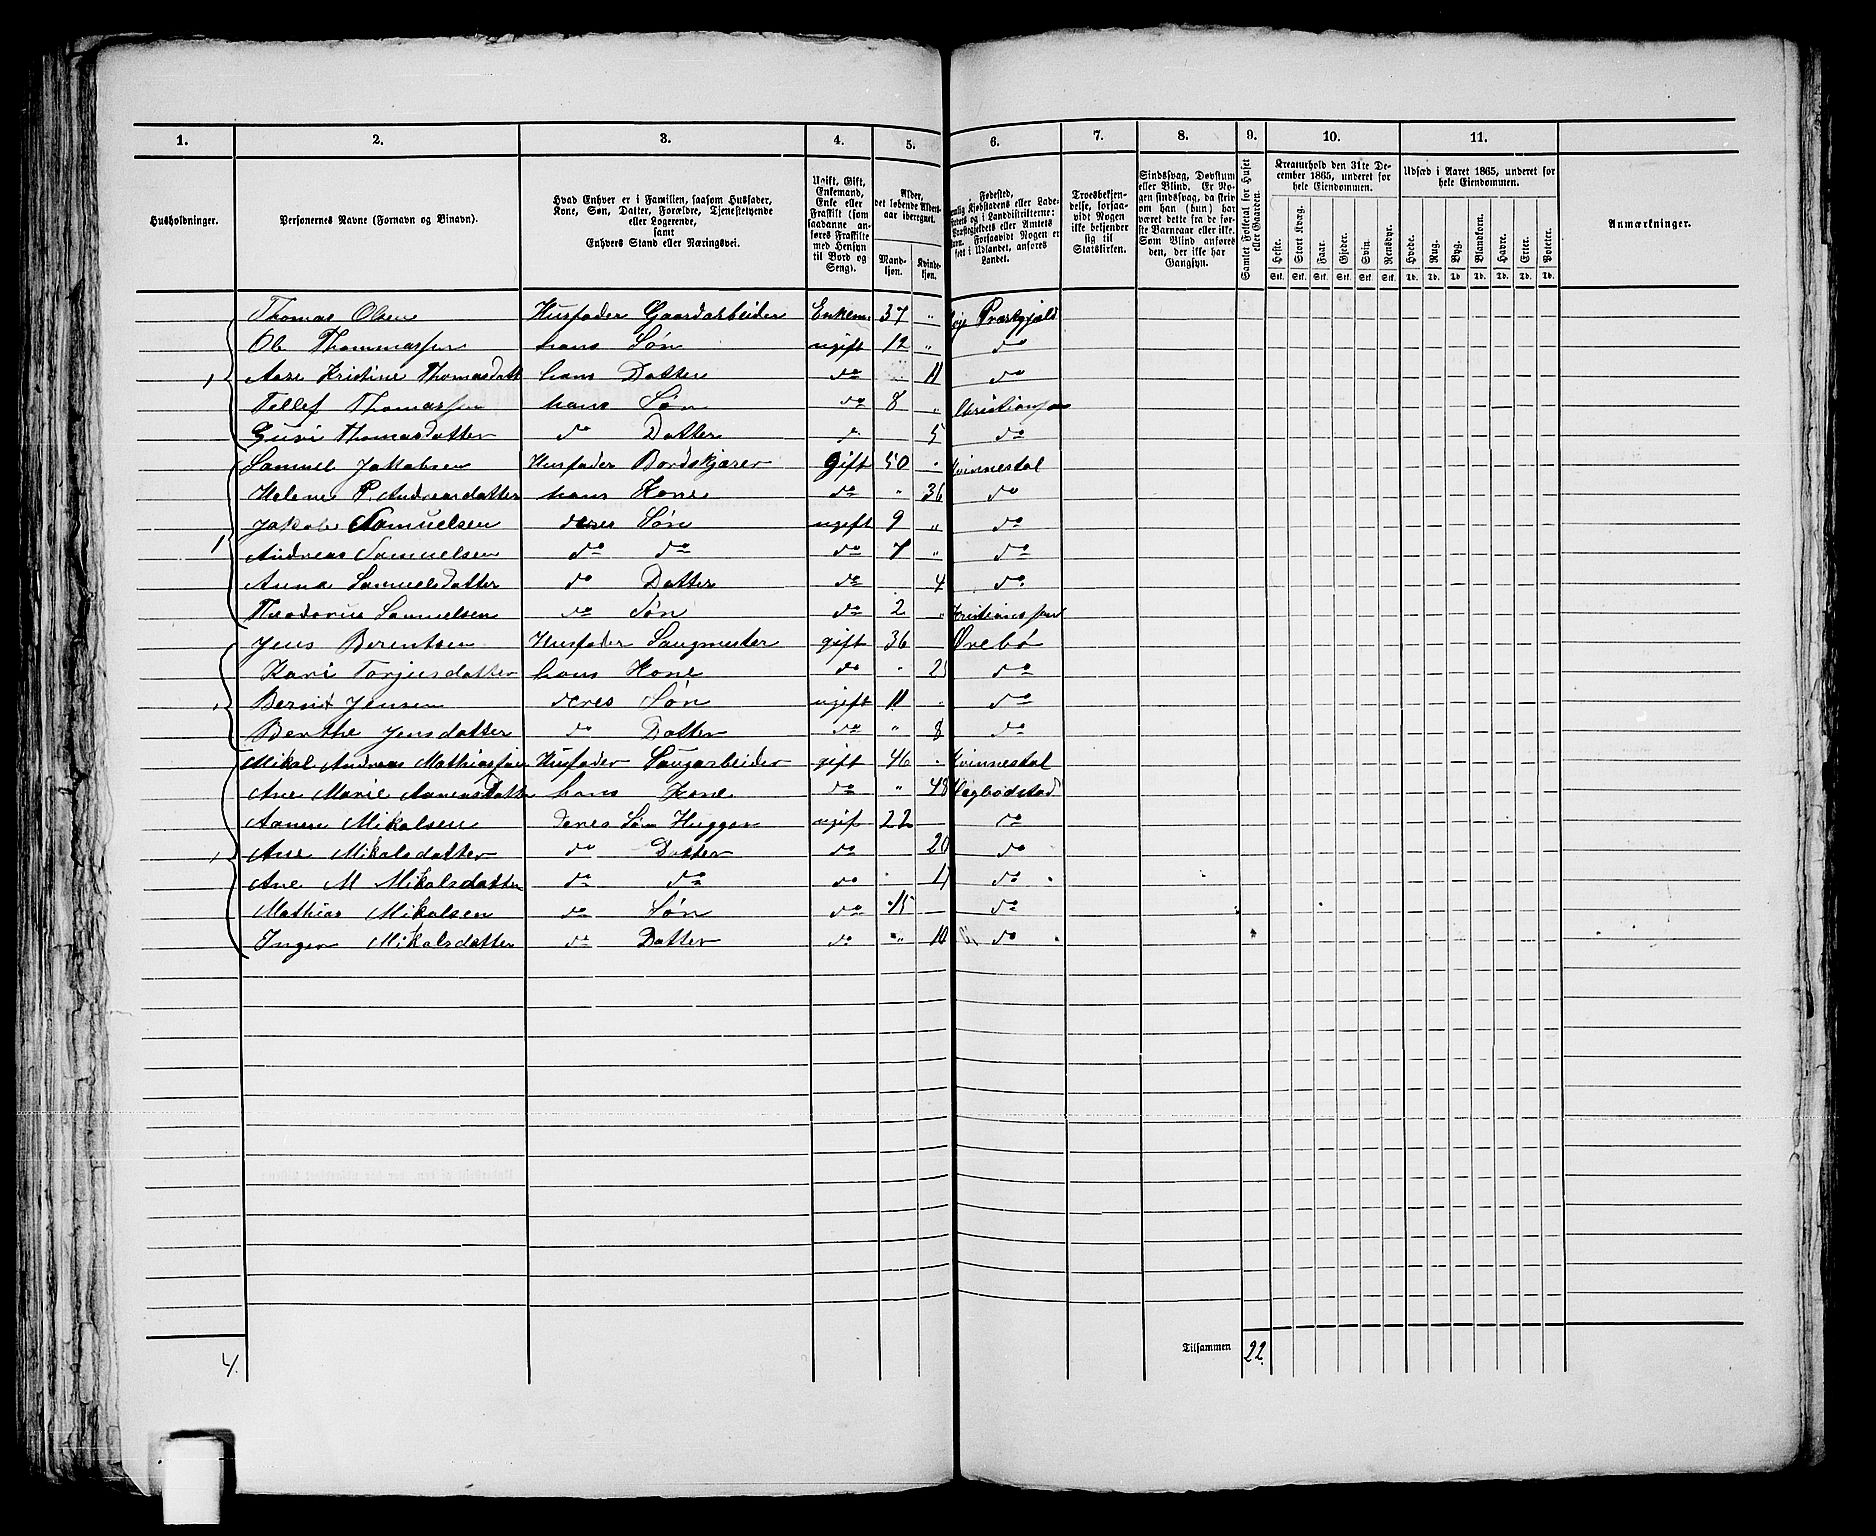 1. 2. 3. 4. 5. 6. 7. 8. 9. 10. 11.
Husholdninger.
Personernes Navne (Fornavn og Binavn).
Hvad Enhver er i Familien, saasom Husfader,
Kone, Søn, Datter, Forældre, Tjenestetyende
eller Logerende,
samt
Enhvers Stand eller Næringsvei.
Ugift, Gift,
Enkemand,
Enke eller
Fraskilt (som
saadanne an-
føres Fraskilte
med Hensyn
til Bord og
Seng).
Alder,
det løbende Alders-
aar iberegnet.
Mand-
kjøn.
Kvinde-
kjøn.
Fødested,
Kjøbstadens eller Lade-
i Landdistrikterne:
Præstegjeldets eller Amtets
Navn. Forsaavidt Nogen er
født i Udlandet, anføres
Landet.
Troesbekjen-
delse, forsaa-
vidt Nogen
ikke bekjender
sig til
Statskirken.
Sindssvag, Døvstum
eller Blind. Er No-
gen sindssvag, da skriv
om han (hun) har
været dette fra de før-
ste Barneaar eller ikke.
Som Blind anføres
den, der ikke har
Gangsyn.
Samlet Folketal for Huset
eller Gaarden.
Kreaturhold den 31te De-
cember 1865, underet for
hele Eiendommen.
Heste. Stort Kvæg. Faar. Gjeder. Svin. Rensdyr.
Stk. Stk. Stk. Stk. Stk. Stk.
Udsæd i Aaret 1865, underet for
hele Eiendommen.
Hvede. Rug. Byg. Blandkorn. Havre. Erter. Poteter.
Td. Td. Td. Td. Td. Td. Td.
Anmærkninger.
Thomas Olsen Husfader Gaardarbeider Enkem. 37 " Præstgjæld
Ole Thommassen hans Søn ugift 12 " do
1 Aase Kristine Thomasdatt hans Datter do 11 do
Tellef Thomassen hans Søn do 8 " Christiansa
Guri Thomasdatter do Datter do 5 do
Samuel Jakobsen Husfader Bordskjærer gift 50 Kvinnesdal
Helene P. Andreasdatter hans Kone do " 36 do
1 Jakob Samuelsen deres Søn ugift 9 " do
Andreas Samuelsen do do do 7 " do
Anna Samuelsdatter do Datter do 4 do
Theodorus Samuelsen do Søn do 2 " Kristianssand
Jens Berentsen Husfader Saugmester gift 36 Øvebø
Kari Torjusdatter hans Kone do do
1 Bernt Jensen deres Søn ugift 11 do
Berthe Jensdatter do Datter do " 8 do
Mikal Andreas Mathiassen Husfader Saugarbeider gift 46 Kvinnesdal
Ane Marie Aanensdatter hans Kone do " 48 Hægbødstad
Aanen Mikalsen deres Søn Hugger ugif 22 do
1 Ane Mikalsdatter do Datter do 20 do
Ane M Mikalsdatter do do do do
Mathias Mikalsen do Søn do 15 do
Inger Mikalsdatter do Datter do " 10 do
4. Tilsammen 22.